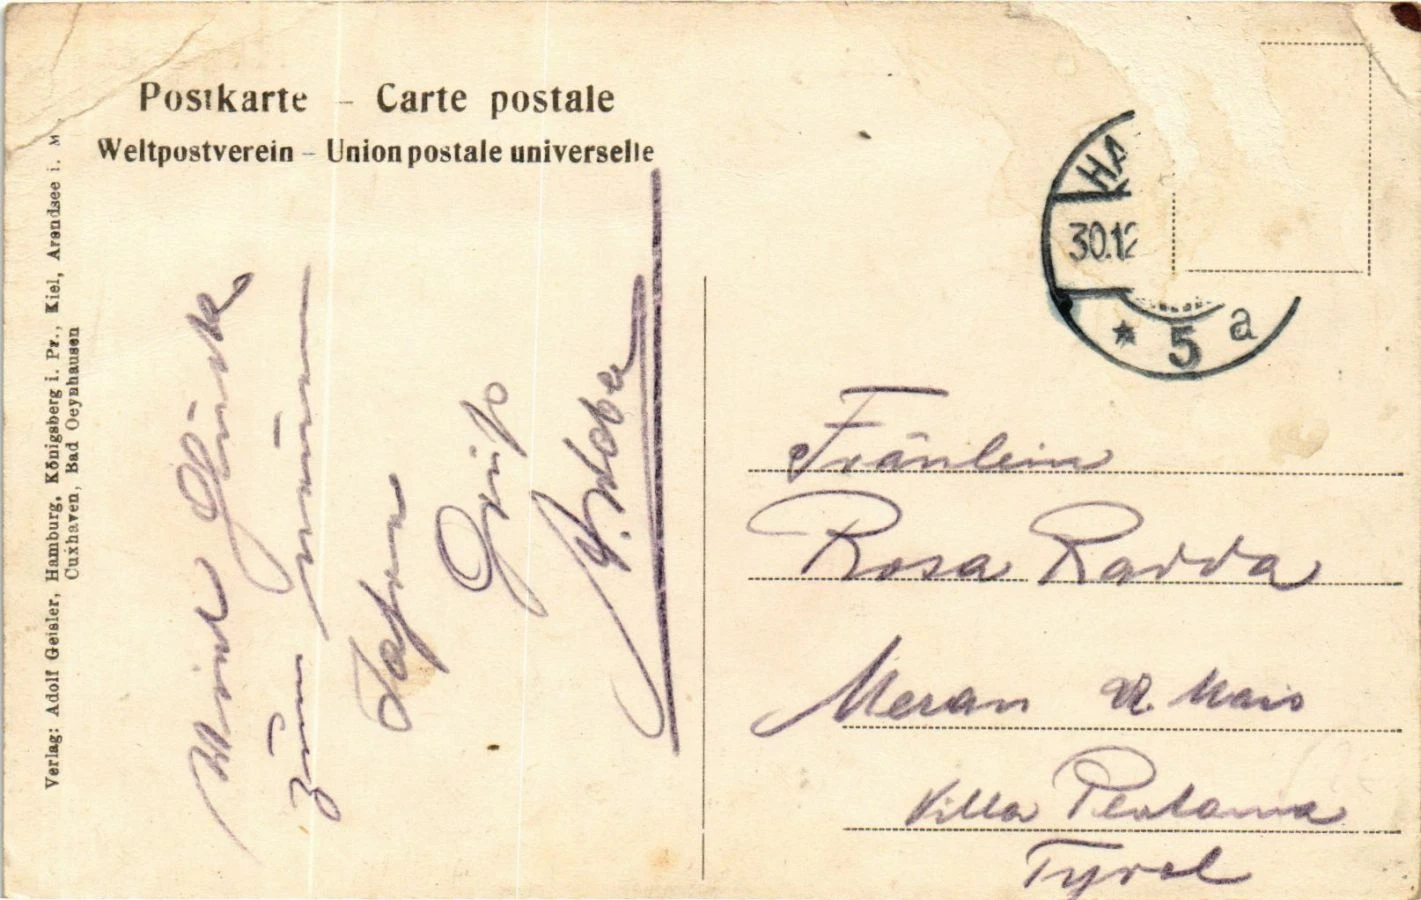 Postkarte – Carte postale
Weltpostverein – Union postale universelle
Verlag: Adolf Geisler, Hamburg, Königsberg i. Pr., Kiel, Arendsee i. M
Cuxhaven, Bad Oeynhausen
Viel Glück
zum neuen
Jahre
Gruß
HA
30.12
* 5 a
Fräulein
Rosa Radda
Meran Mais
Villa
Tyrol